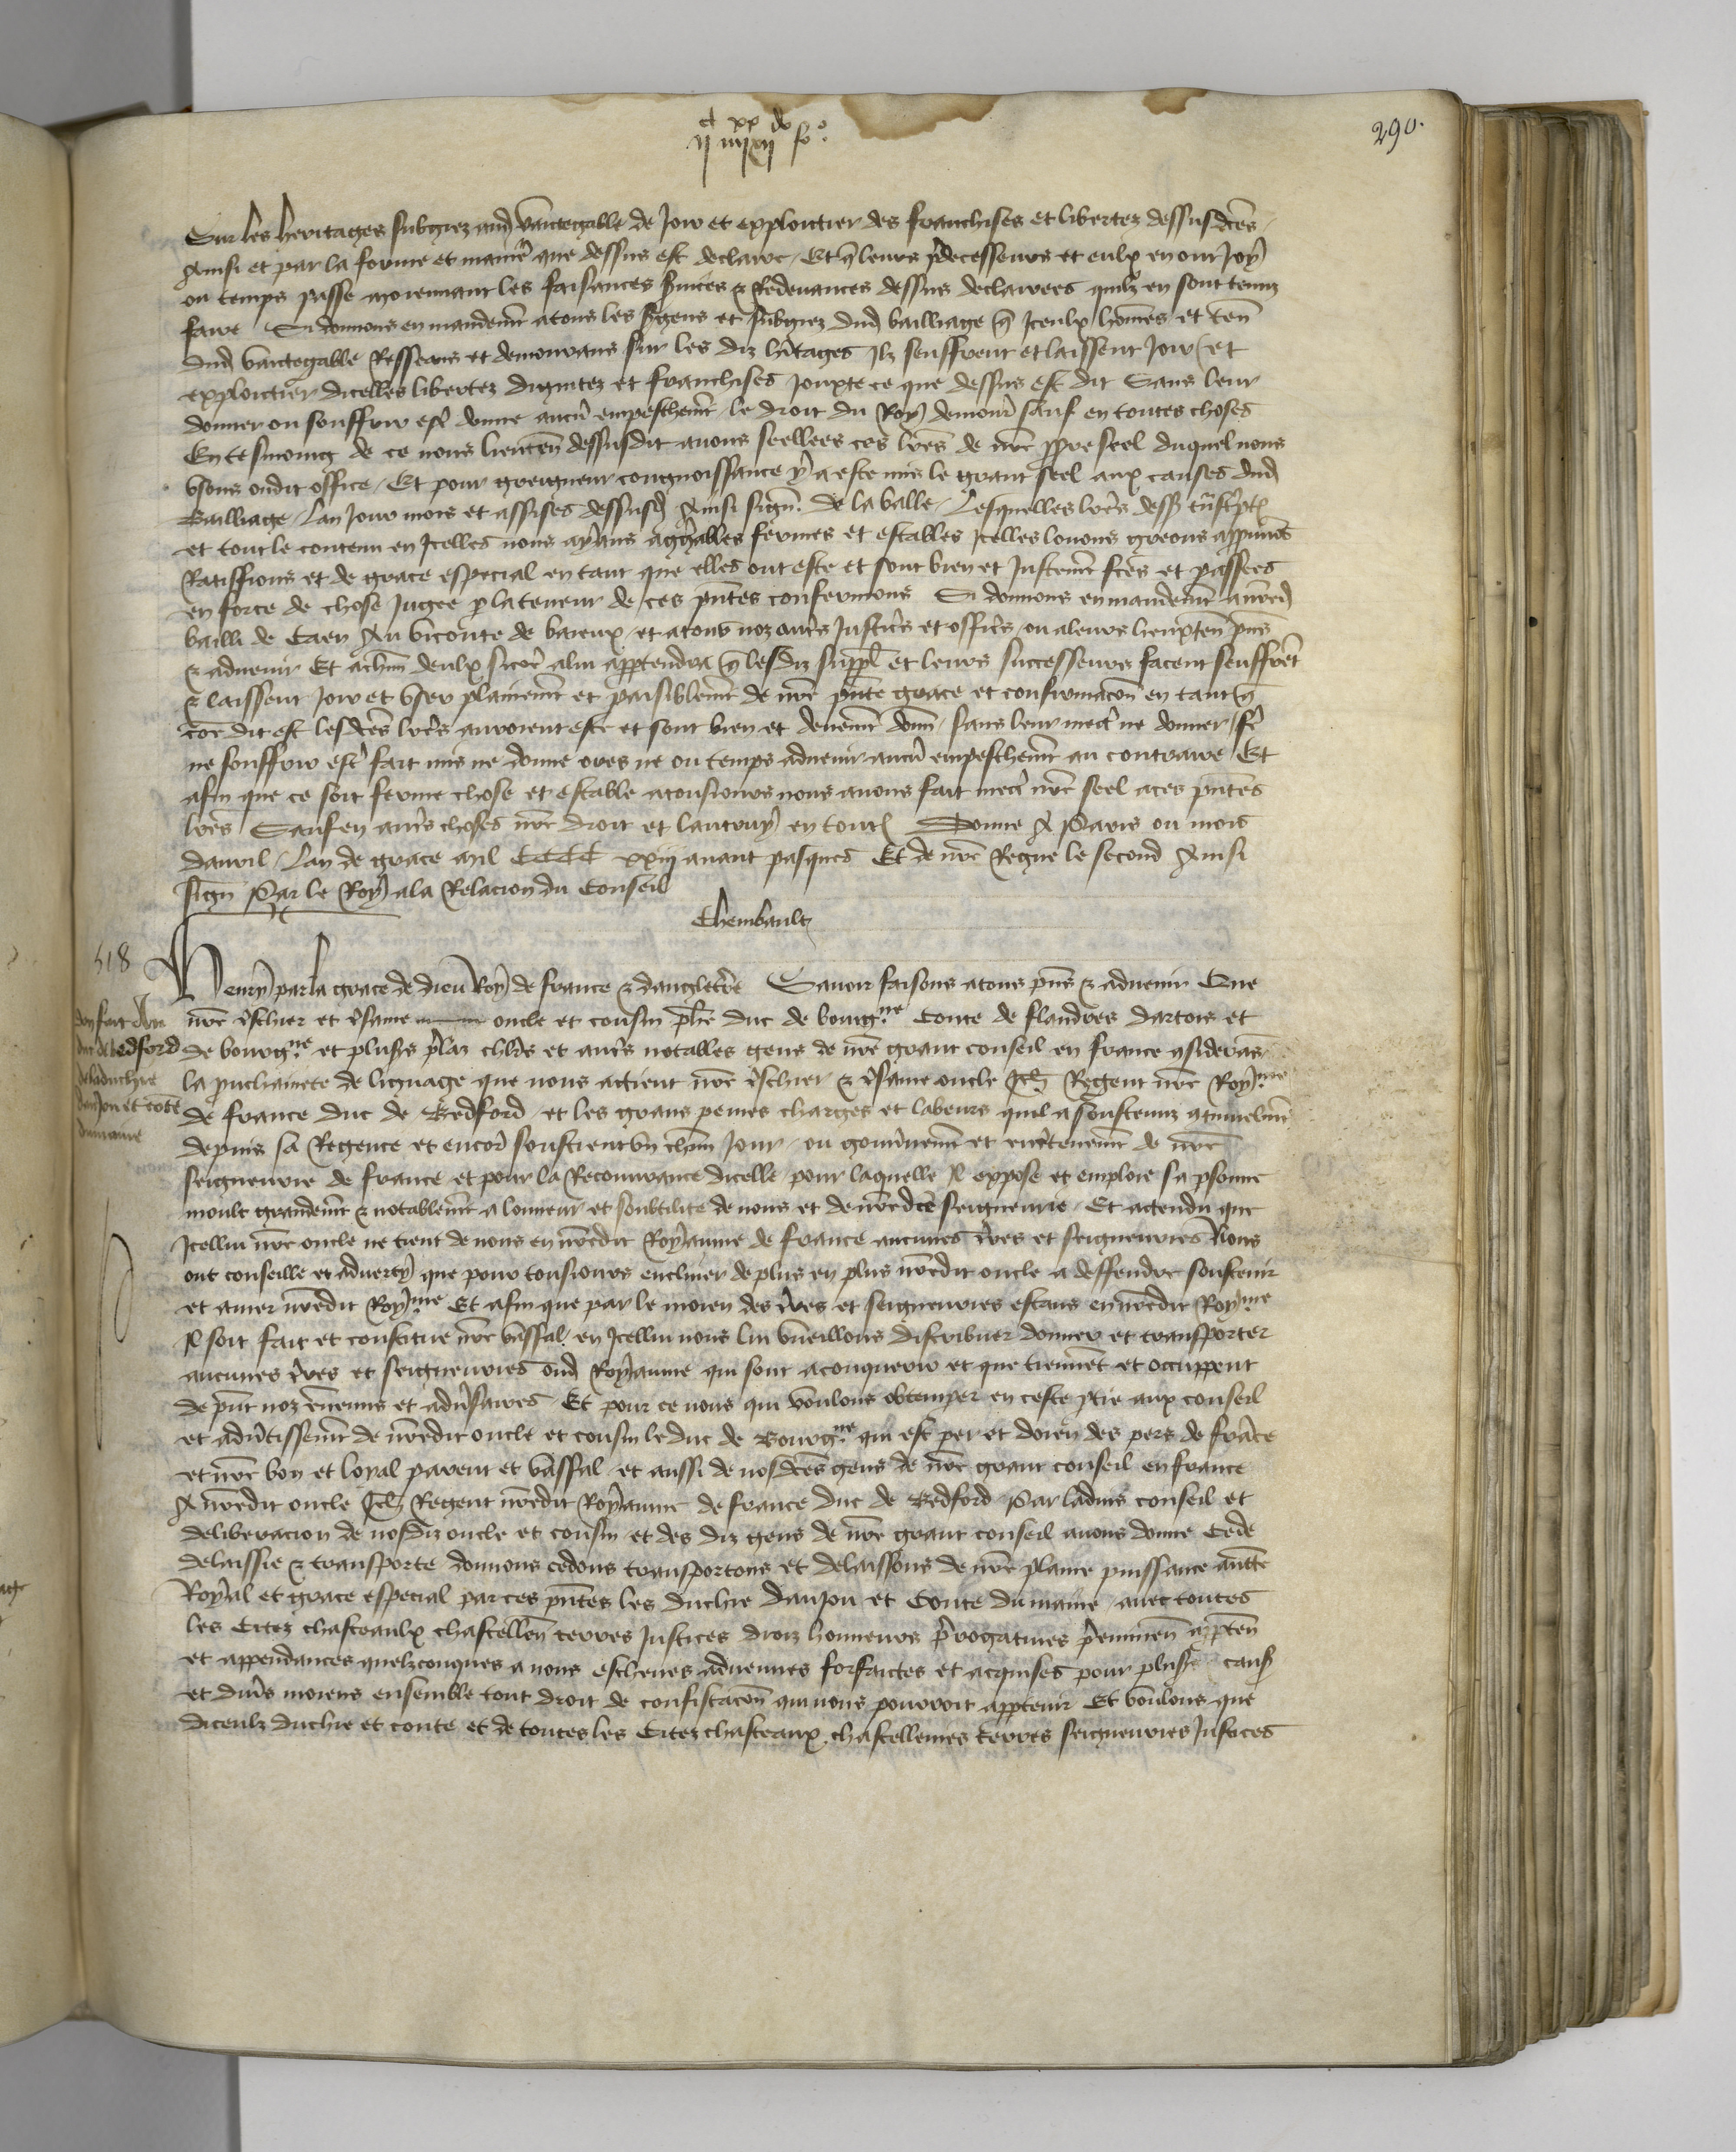 290.
ct xx do
ij iiij xij fo
Sur les heritages subgiez aud vantegalle de Joir et exploictier des franchises et libertez dessusdces
Ainsi et par la forme et maniè que dessus est declaire Et q leurs pdecesseurs et eulx en ont Joy
ou temps passe moiennant les faisances suices & Redevances dessus declairees quilz en sont tenuz
faire Si donnons en mandemt a tous les sgens et subgiez dud bailliage q Iceulx hommes et ten
dud vantegalle Resseans et demourans sur les diz hitages Ilz seuffrent et laissent Joir et
exploictier dicelles libertez dignitez et franchises Jouxte ce que dessus est dit Sans leur
donner ou souffrir est donne aucun empeschemt le droit du Roy demour sauf en toutes choses
En tesmoing de ce nous lieuten dessusdit avons seellees ces lres de nre ppre seel duquel nous
usons oudit office Et pour greigneur congnoissance y a este mis le grant seel aux causes dud
Bailliage Lan Jour mois et assises dessusd Ainsi sign. de la valle Lesquelles lres dess tnscptes
et tout le contenu en Icelles nous ayans aggables fermes et estables Icelles louons greons appuvos
Ratiffions et de grace especial en tant que elles ont este et sont bien et Justemt fces et passees
en force de chose Jugee p la teneur de ces pntes confermons Si donnons en mandemt au
bailli de Caen Au viconte de baieux et a tous noz autrs Justics et officrs ou a leurs lieuxten pns
& advenir Et a chun deulx sicoe a lui apptendra q lesdiz suppl et leurs successeurs facent seuffret
& laissent Joir et user plainemt et paisiblemt de nre pnte grace et confirmacon en tant q
coe dit est lesdces lres auroient este et sont bien et deuemt donn Sans leur mect ne donner fe
ne souffrir est fait mis ne donne ores ne ou temps advenir aucun empeschemt au contraire Et
afin que ce soit ferme chose et estable a tousiours nous avons fait mect nre seel a ces pntes
lres Sauf en autrs choses nre droit et lautruy en toutes Donne A Paris ou mois
davril Lan de grace mil CCCC xxiij avant pasques Et de nre Regne le second Ainsi
sign Par le Roy a la Relacion du Conseil
Chembault
518
Henry par la grace de dieu Roy de france & dangleterre Savoir faisons a tous pns & advenir Que
nre tschier et tsame oncle et cousin phe duc de bourgne Conte de flandres dartois et
de bourgne et plusrs plaz chlrs et autrs notables gens de nre grant conseil en france csiderans
la puchainete de lignage que nous actient nre tschier & tsame oncle Jeh Regent nre Royme
de france duc de Bedford et les grans peines charges et labeurs quil a soustenuz
depuis sa Regence et encor soustient un chun Jour ou gouvnemt et entretenemt de nre
seigneurie de france et pour la Recouvrance dicelle pour laquelle Il expose et emploie sa psonne
moult grandemt & notablemt a lonneur et soubtilite de nous et de nredce seigneurie Et actendu que
Icellui nre oncle ne tient de nous en nredit Royaume de france aucunes tres et seigneuries Nous
ont conseille et adverty que pour tousiours encliner de plus en plus nredit oncle a deffendre soustenir
et amer nredit Royme Et afin que par le moien des tres et seigneuries estans en nredit Royme
Il soit fait et constitue nre vassal en Icellui nous lui vueillons distribuer donner et transporter
aucunes tres et seigneuries oud Royaume qui sont a conquerir et que tiennet et occuppent
de pnt noz ennemis et advsaires Et pour ce nous qui voulons obtemper en ceste ptie aux conseil
et advtissemt de nredit oncle et cousin le duc de Bourgne qui est per et doien des pers de france
et nre bon et loyal parent et vassal et aussi de nosdces gens de nre grant conseil en france
A nredit oncle Jeh Regent nredit Royaume de france duc de Bedford Par ladvis conseil et
deliberacion de nosdiz oncle et cousin et des diz gens de nre grant conseil avons donne Cede
delaissie & transporte donnons cedons transportons et delaissons de nre plaine puissance aucte
Royal et grace especial par ces pntes les duchie danjou et Conte du maine avec toutes
les Citez chasteaulx chastellen terres Justices droiz honneurs prrogatives preeminen appten
et appendances quelzconques a nous escheues advenues forfaictes et acquises pour plusrs caus
et divs moiens ensemble tout droit de confiscacon qui nous pourroit apptenir Et voulons que
diceulz duchie et conte et de toutes les Citez chasteaux chastellenies terres seigneuries Justices
don fait Au
duc de bedford
de la duchie
danjou et cote
du maine